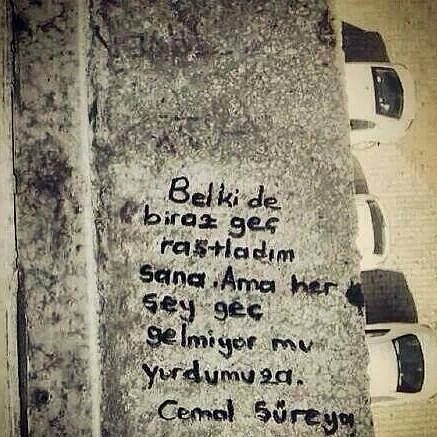 Belki de
biraz geç
rastladım
sana. Ama her
şey geç
gelmiyor mu
yurdumuza.
Cemal Süreya